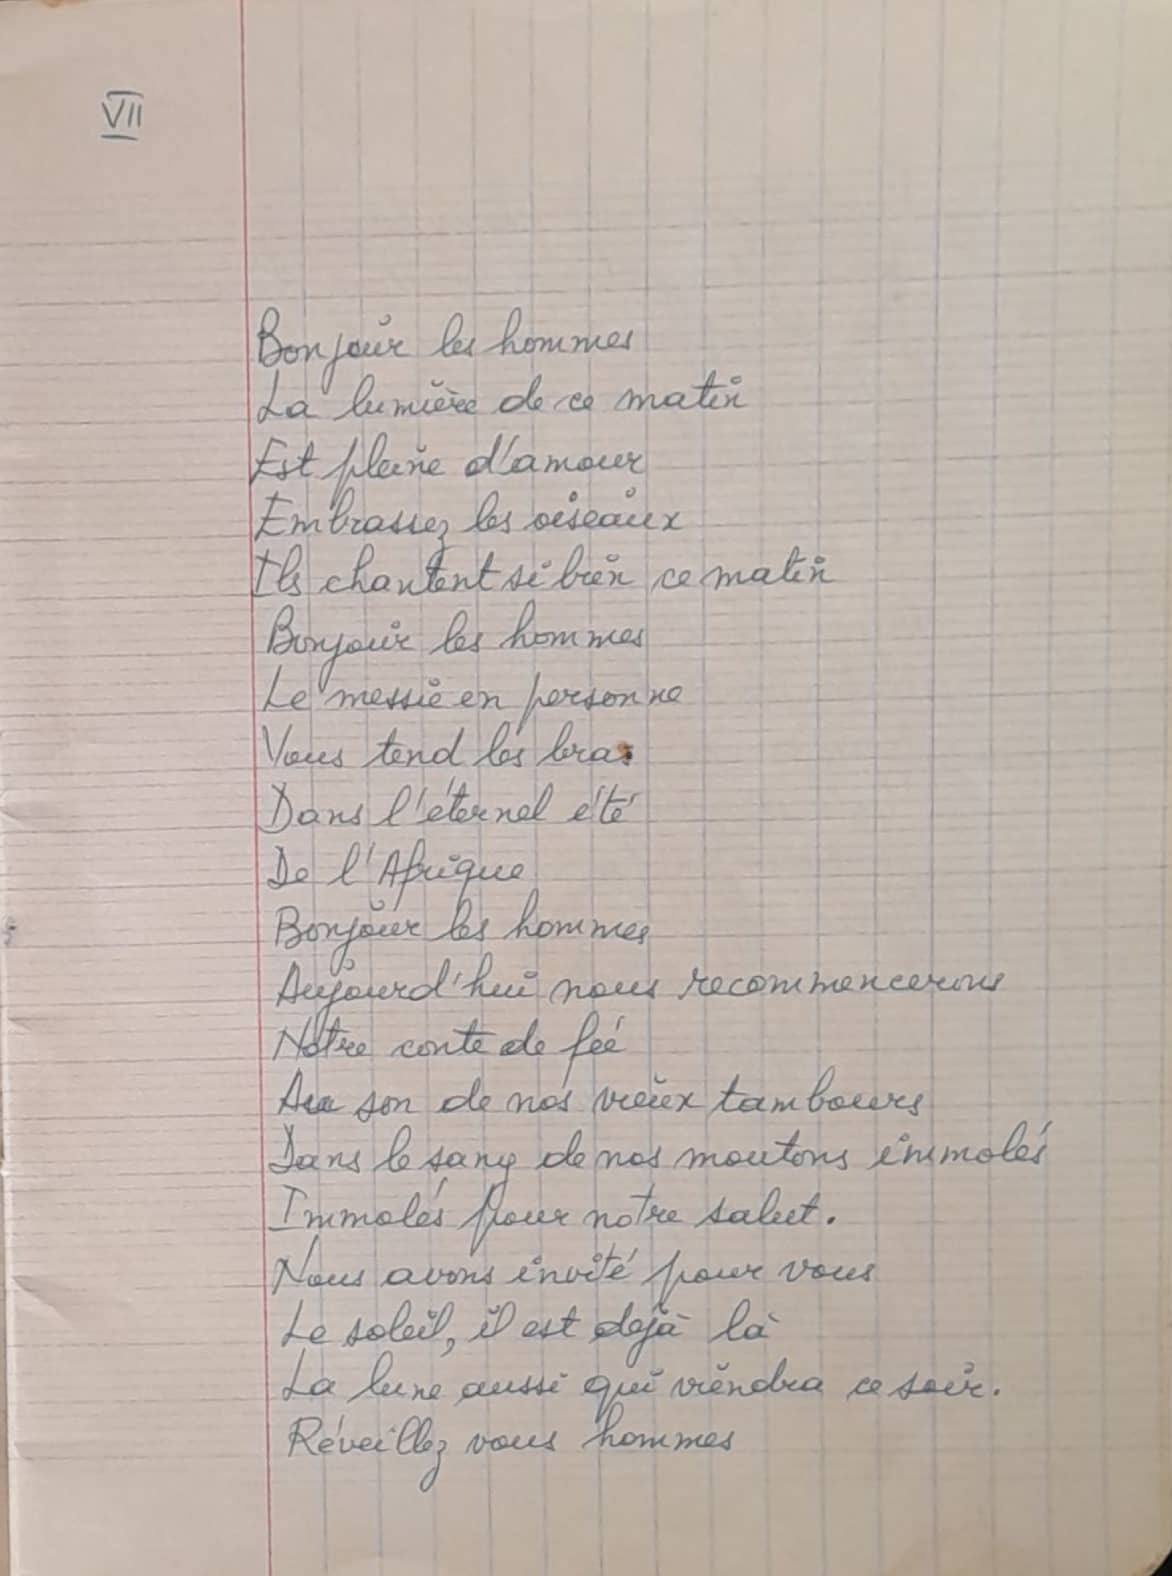 VII
Bonjour les hommes
La lumière de ce matin
Est pleine d'amour
Embrassez les oiseaux
Ils chantent si bien ce matin
Bonjour les hommes
Le messie en personne
Vous tend les bras
Dans l'éternel été
De l'Afrique
Bonjour les hommes
Aujourd'hui nous recommencerons
Notre conte de feé
Au son de nos vieux tambours
Dans le sang de nos moutons immolés
Immolés pour notre salut.
Nous avons invité pour vous
Le soleil, il est dejà là
La lune aussi qui viendra ce soir.
Réveillez vous hommes